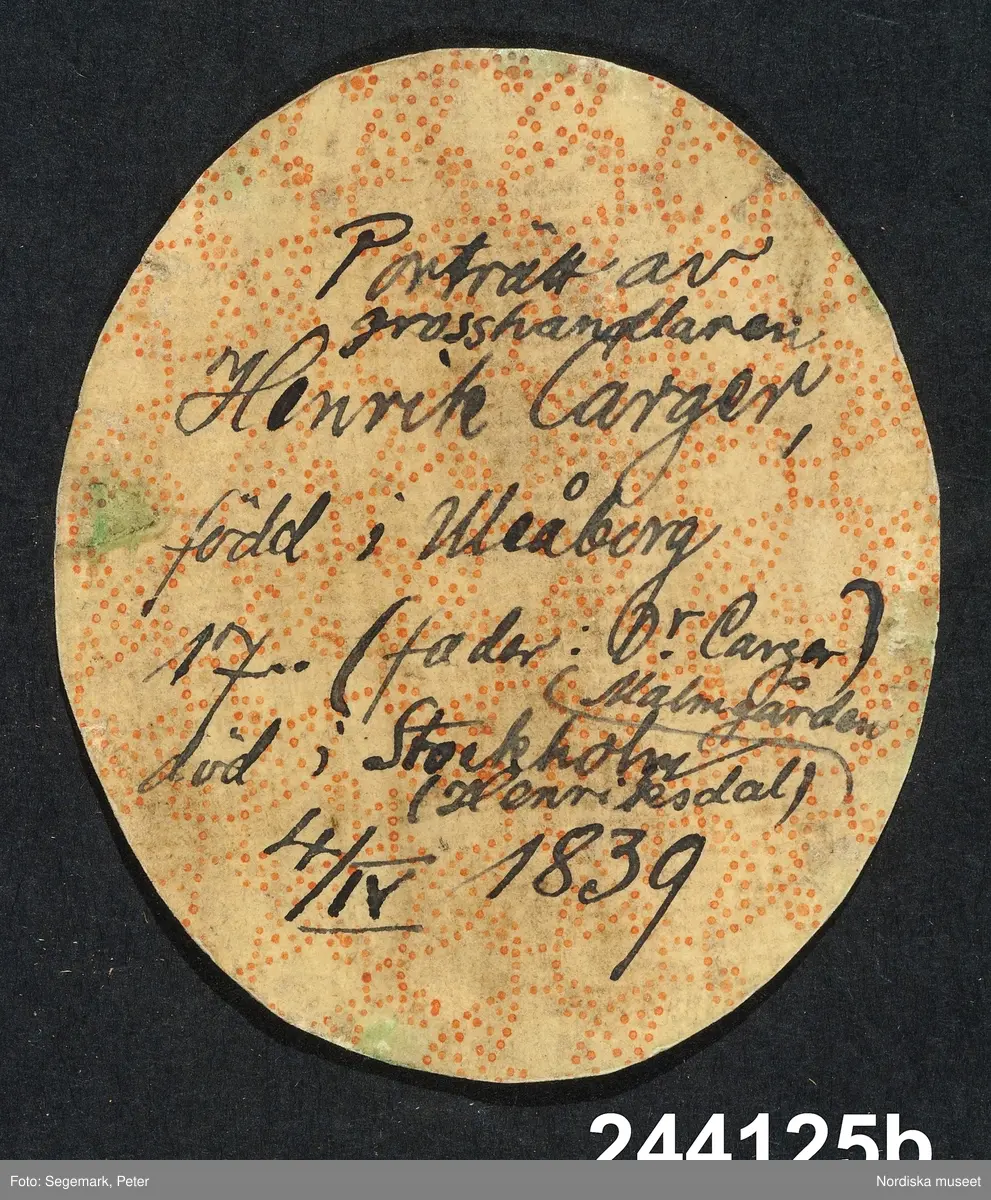 Porträtt av
grosshandlaren
Henrik Carger,
född i Uleåborg
17.. (fader: Dr. Carger)
(Malmgården
död i Stockholm
(Henriksdal)
4/IV 1839
244125b
Foto: Segemark, Peter
Nordiska museet